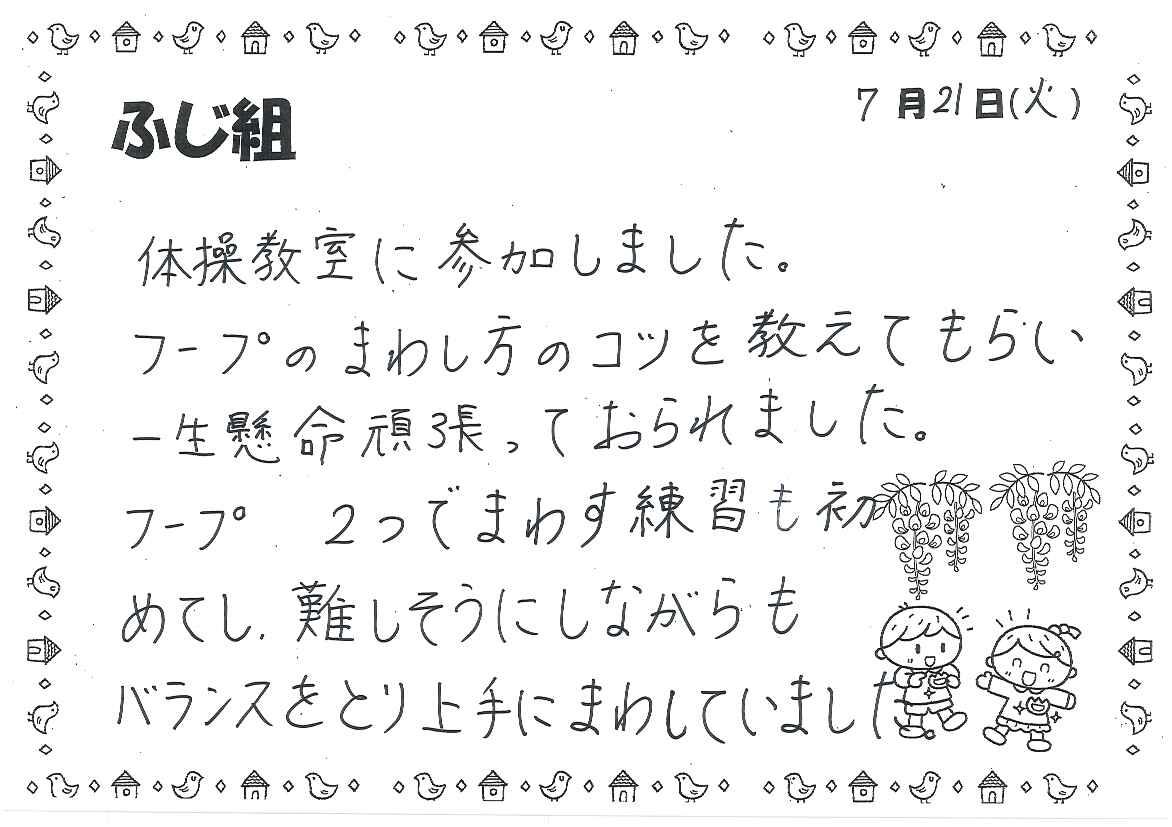 ふじ組
7月21日(火)
体操教室に参加しました。
フープのまわし方のコツを教えてもらい
一生懸命頑張っておられました。
フープ 2つでまわす練習も初
めてし、難しそうにしながらも
バランスをとり上手にまわしていました